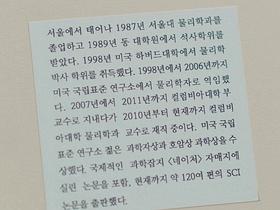 서울에서 태어나 1987년 서울대 물리학과를
졸업하고 1989년 동 대학원에서 석사학위를
받았다. 1998년 미국 하버드대학에서 물리학
박사 학위를 취득했다. 1998년에서 2006년까지
미국 국립표준 연구소에서 물리학자로 역임했
다. 2007년에서 2011년까지 컬럼비아대학 부
교수로 지내다가 2010년부터 현재까지 컬럼비
아대학 물리학과 교수로 재직 중이다. 미국 국립
표준 연구소 젊은 과학자상과 호암상 과학상을 수
상했다. 국제적인 과학잡지 <네이쳐> 자매지에
실린 논문을 포함, 현재까지 약 120여 편의 SCI
논문을 출판했다.